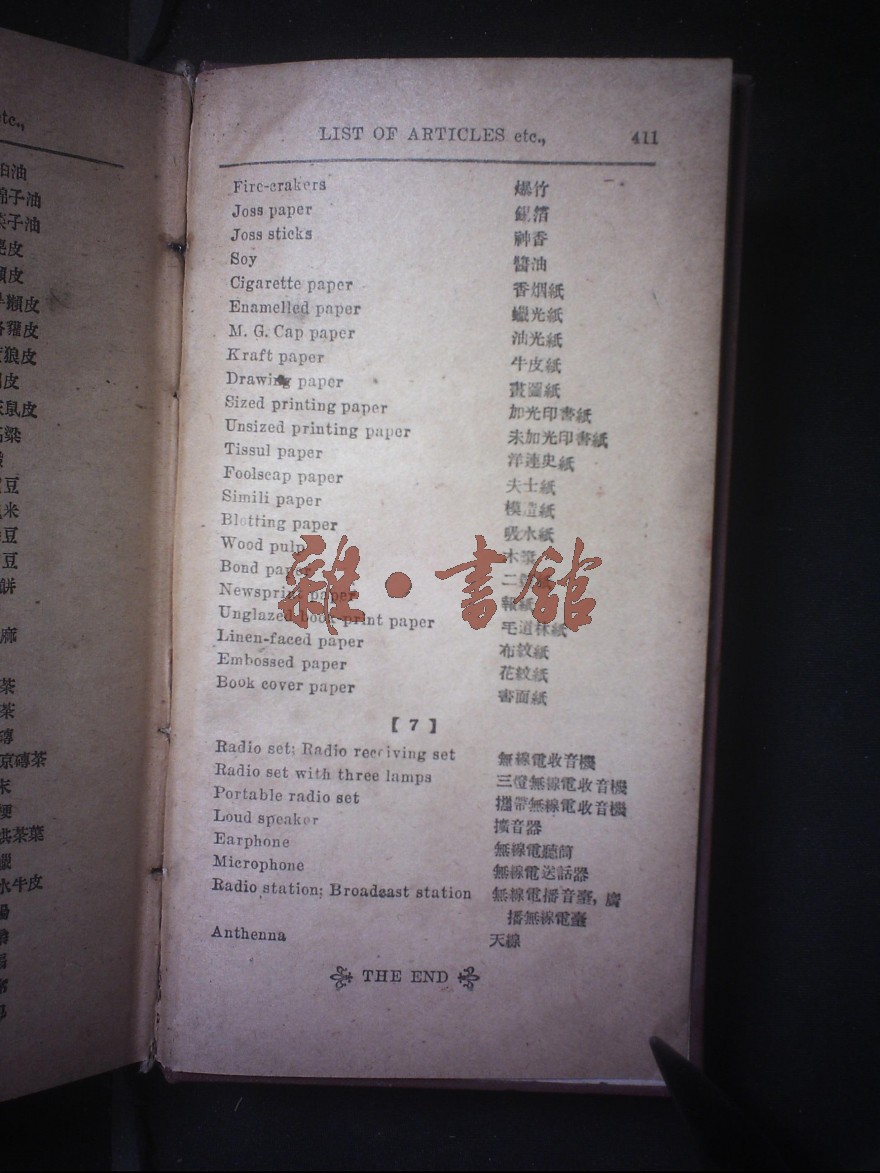 etc.,
子油
子油
皮
皮
獺皮
皮
狼皮
皮
鼠皮
粱
豆
米
豆
豆
餅
麻
茶
茶
磚
京磚茶
末
梗
茶葉
水牛皮
LIST OF ARTICLES etc., 411
Fire-crakers 爆竹
Joss paper 錫箔
Joss sticks 神香
Soy 醬油
Cigarette paper 香烟紙
Enamelled paper 蠟光紙
M. G. Cap paper 油光紙
Kraft paper 牛皮紙
Drawing paper 畫圖紙
Sized printing paper 加光印書紙
Unsized printing paper 未加光印書紙
Tissul paper 洋連史紙
Foolscap paper 夫士紙
Simili paper 模造紙
Blotting paper 吸水紙
Wood pulp 木漿
Bond paper 二
Newsprint paper 報紙
Unglazed book print paper 毛道林紙
Linen-faced paper 布紋紙
Embossed paper 花紋紙
Book cover paper 書面紙
【7】
Radio set; Radio receiving set 無線電收音機
Radio set with three lamps 三燈無線電收音機
Portable radio set 攜帶無線電收音機
Loud speaker 擴音器
Earphone 無線電聽筒
Microphone 無線電送話器
Radio station; Broadcast station 無線電播音臺, 廣
播無線電臺
Anthenna 天線
THE END
雜·書館